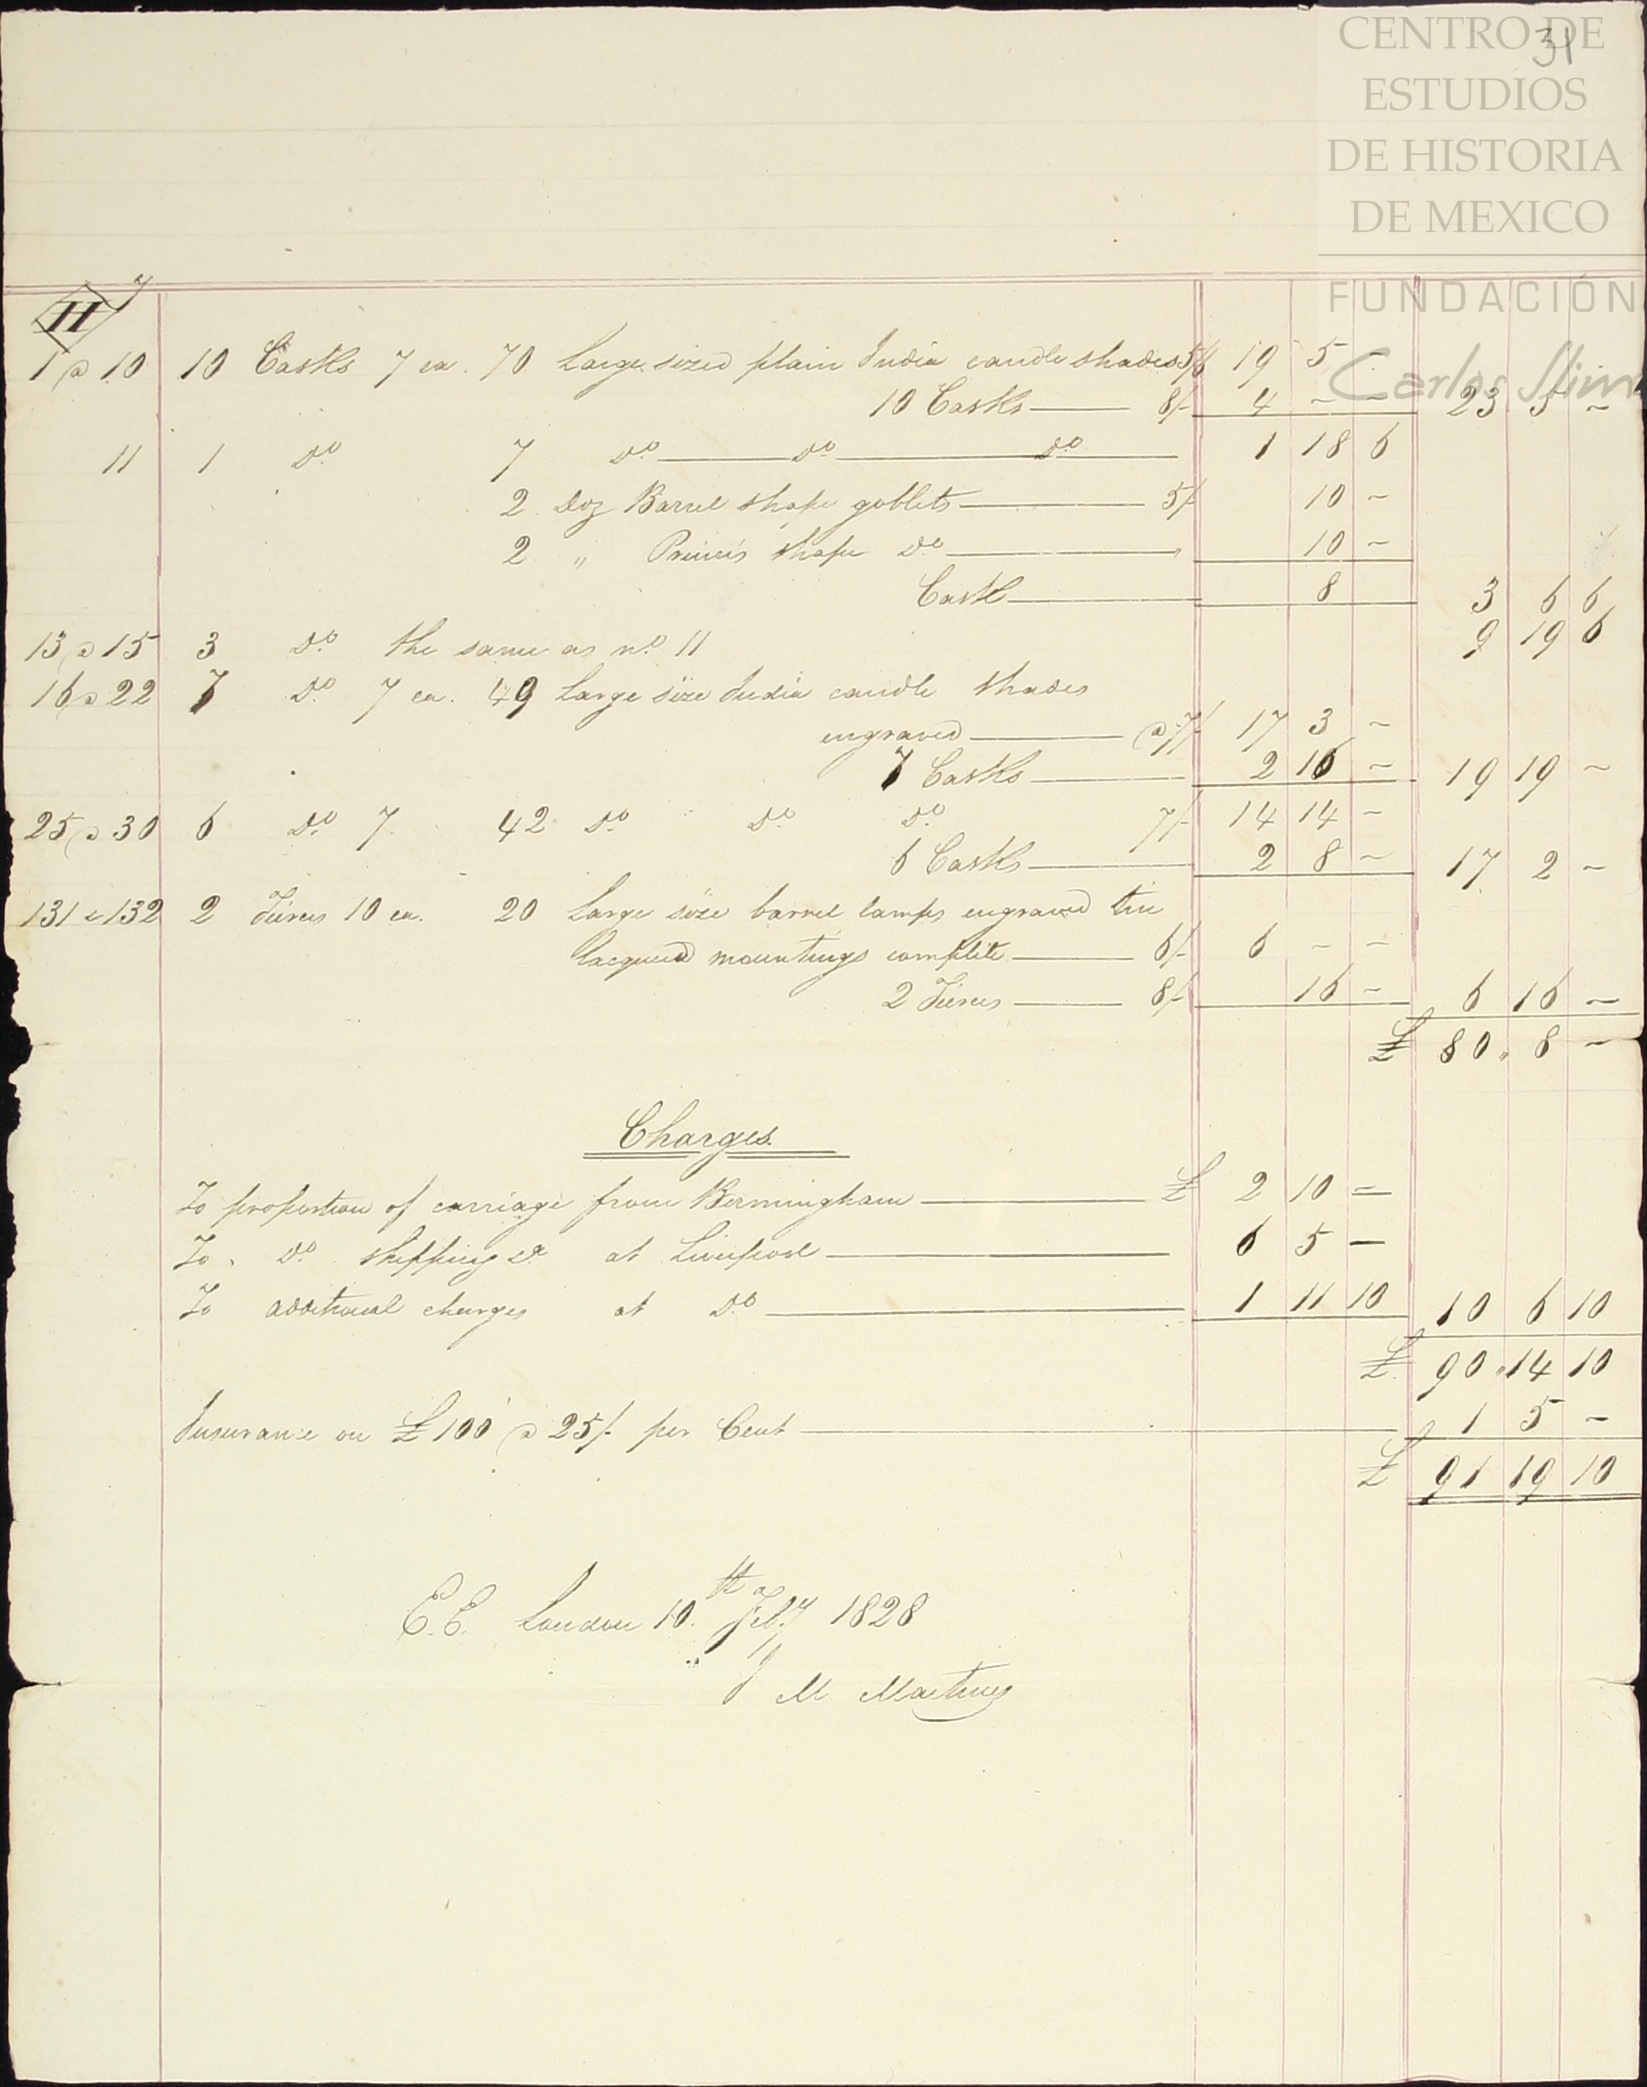 CENTRO DE
31
ESTUDIOS
DE HISTORIA
DE MEXICO
FUNDACIÓN
Carlos Slim
H 7
1 @ 10 10 Casks 7 ea. 70 Large sized plain India candle shades 5/6 19 5 -
10 Casks 8/- 4 - - 23 5 -
11 1 Do 7 Do Do Do 1 18 6
2 Doz Barrel shape goblets 5/- 10 -
2 " Princis shape Do " 10 -
Cask 8 3 6 6
13 @ 15 3 Do the same as no 11 9 19 6
16 @ 22 7 Do 7 ea. 49 Large size India candle shades
engraved @ 7/- 17 3 -
7 Casks 2 16 - 19 19 -
25 @ 30 6 Do 7 42 Do Do Do 7/- 14 14 -
6 Casks 2 8 - 17 2 -
131 & 132 2 Tierces 10 ea. 20 Large size barrel lamps engraved tin
lacquered mountings complete 6/- 6 - -
2 Tierces 8/- 16 - 6 16 -
£ 80 " 8 -
Charges
To proportion of carriage from Birmingham £ 2 10 -
To Do shipping &c at Liverpool 6 5 -
To additional charges at Do 1 11 10 10 6 10
£ 90 " 14 10
Insurance on £100 @ 25/- per Cent 1 5 -
£ 91 19 10
E.E. London 10th Feby 1828
J M Martinez